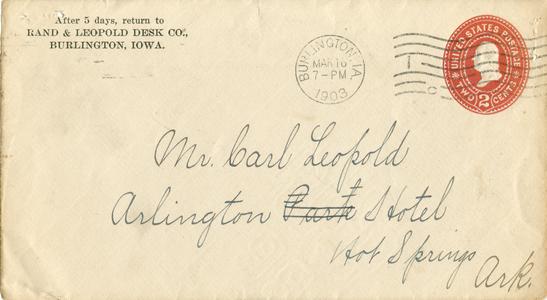 After 5 days, return to
RAND & LEOPOLD DESK CO.,
BURLINGTON, IOWA.
BURLINGTON, IA.
MAR 16
7-PM
1903
UNITED STATES POSTAGE
TWO 2 CENTS
Mr. Carl Leopold
Arlington Park Hotel
Hot Springs
Ark.